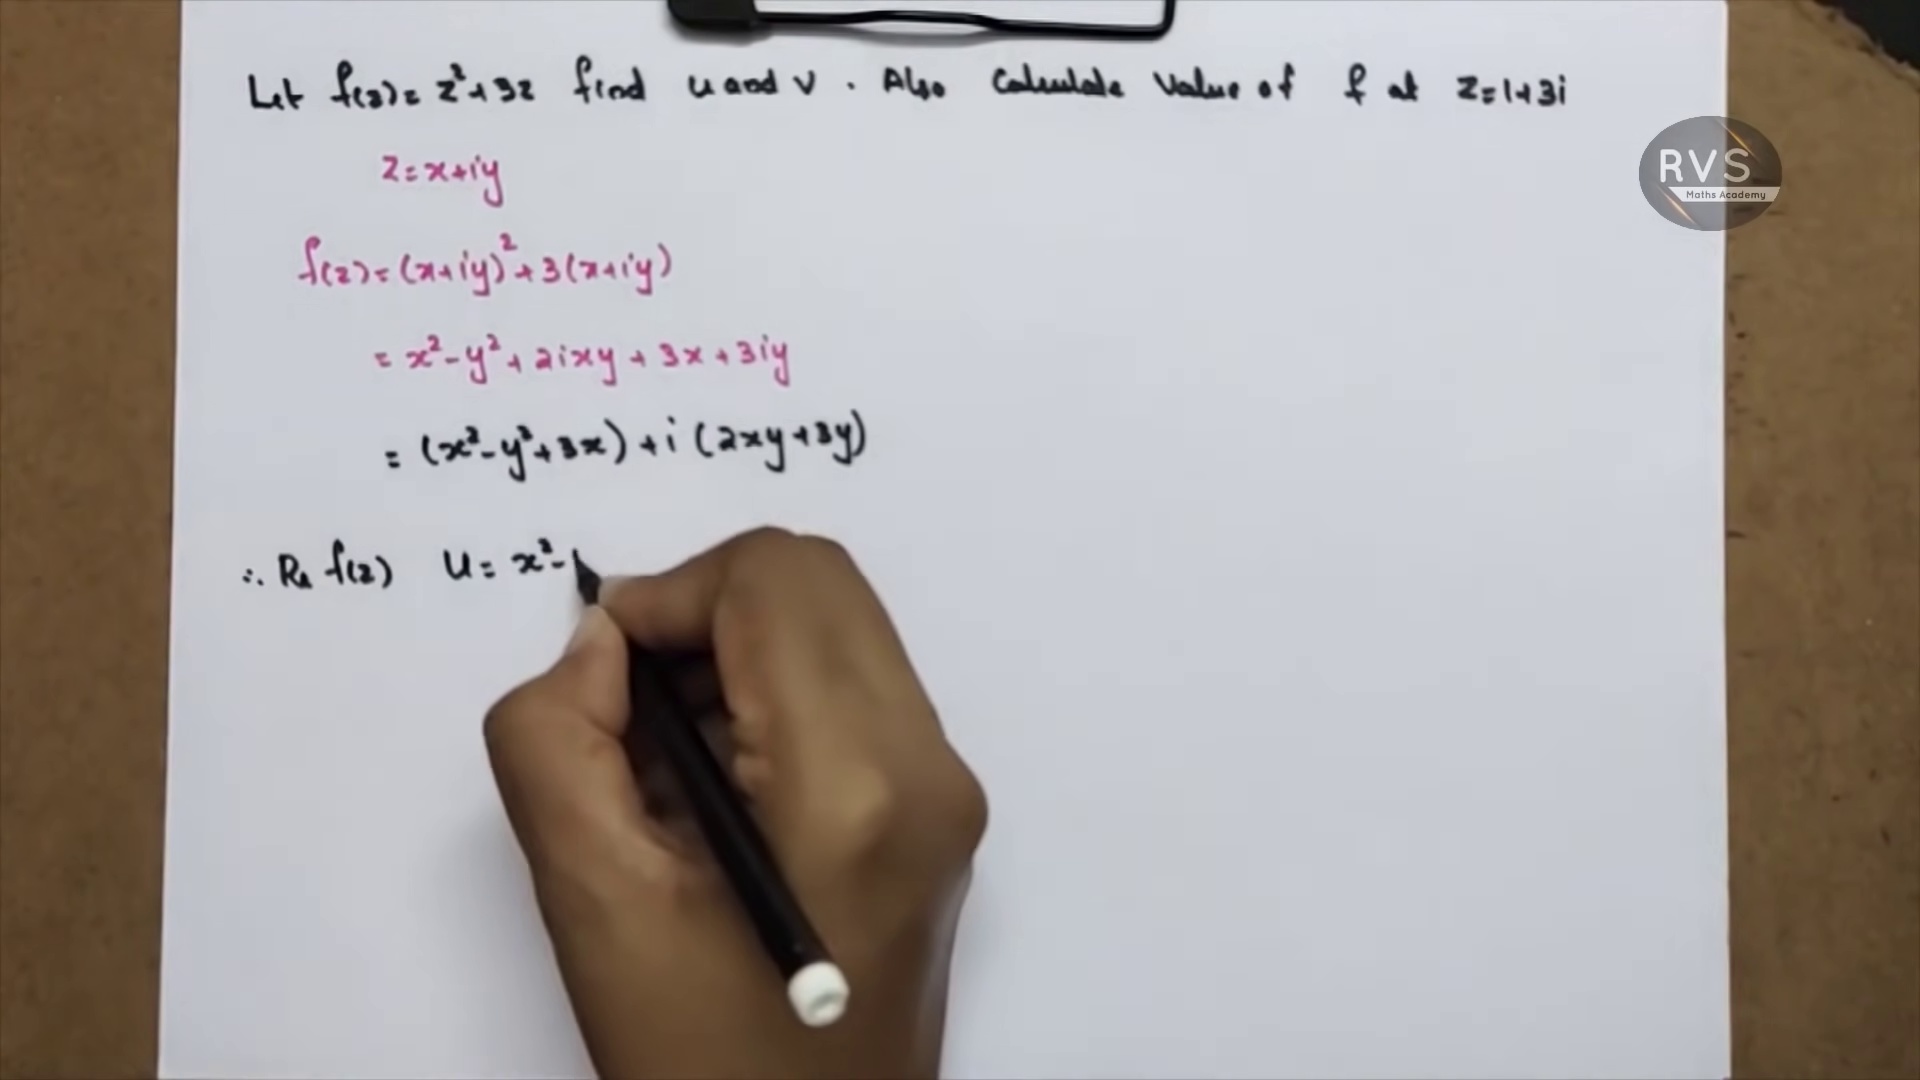 Let f(z) = z² + 3z find u and v . Also Calculate Value of f at z = 1+3i
RVS
Maths Academy
z = x+iy
f(z) = (x+iy)² + 3(x+iy)
= x² - y² + 2ixy + 3x + 3iy
= (x² - y² + 3x) + i (2xy + 3y)
∴ Re f(z) u = x² -